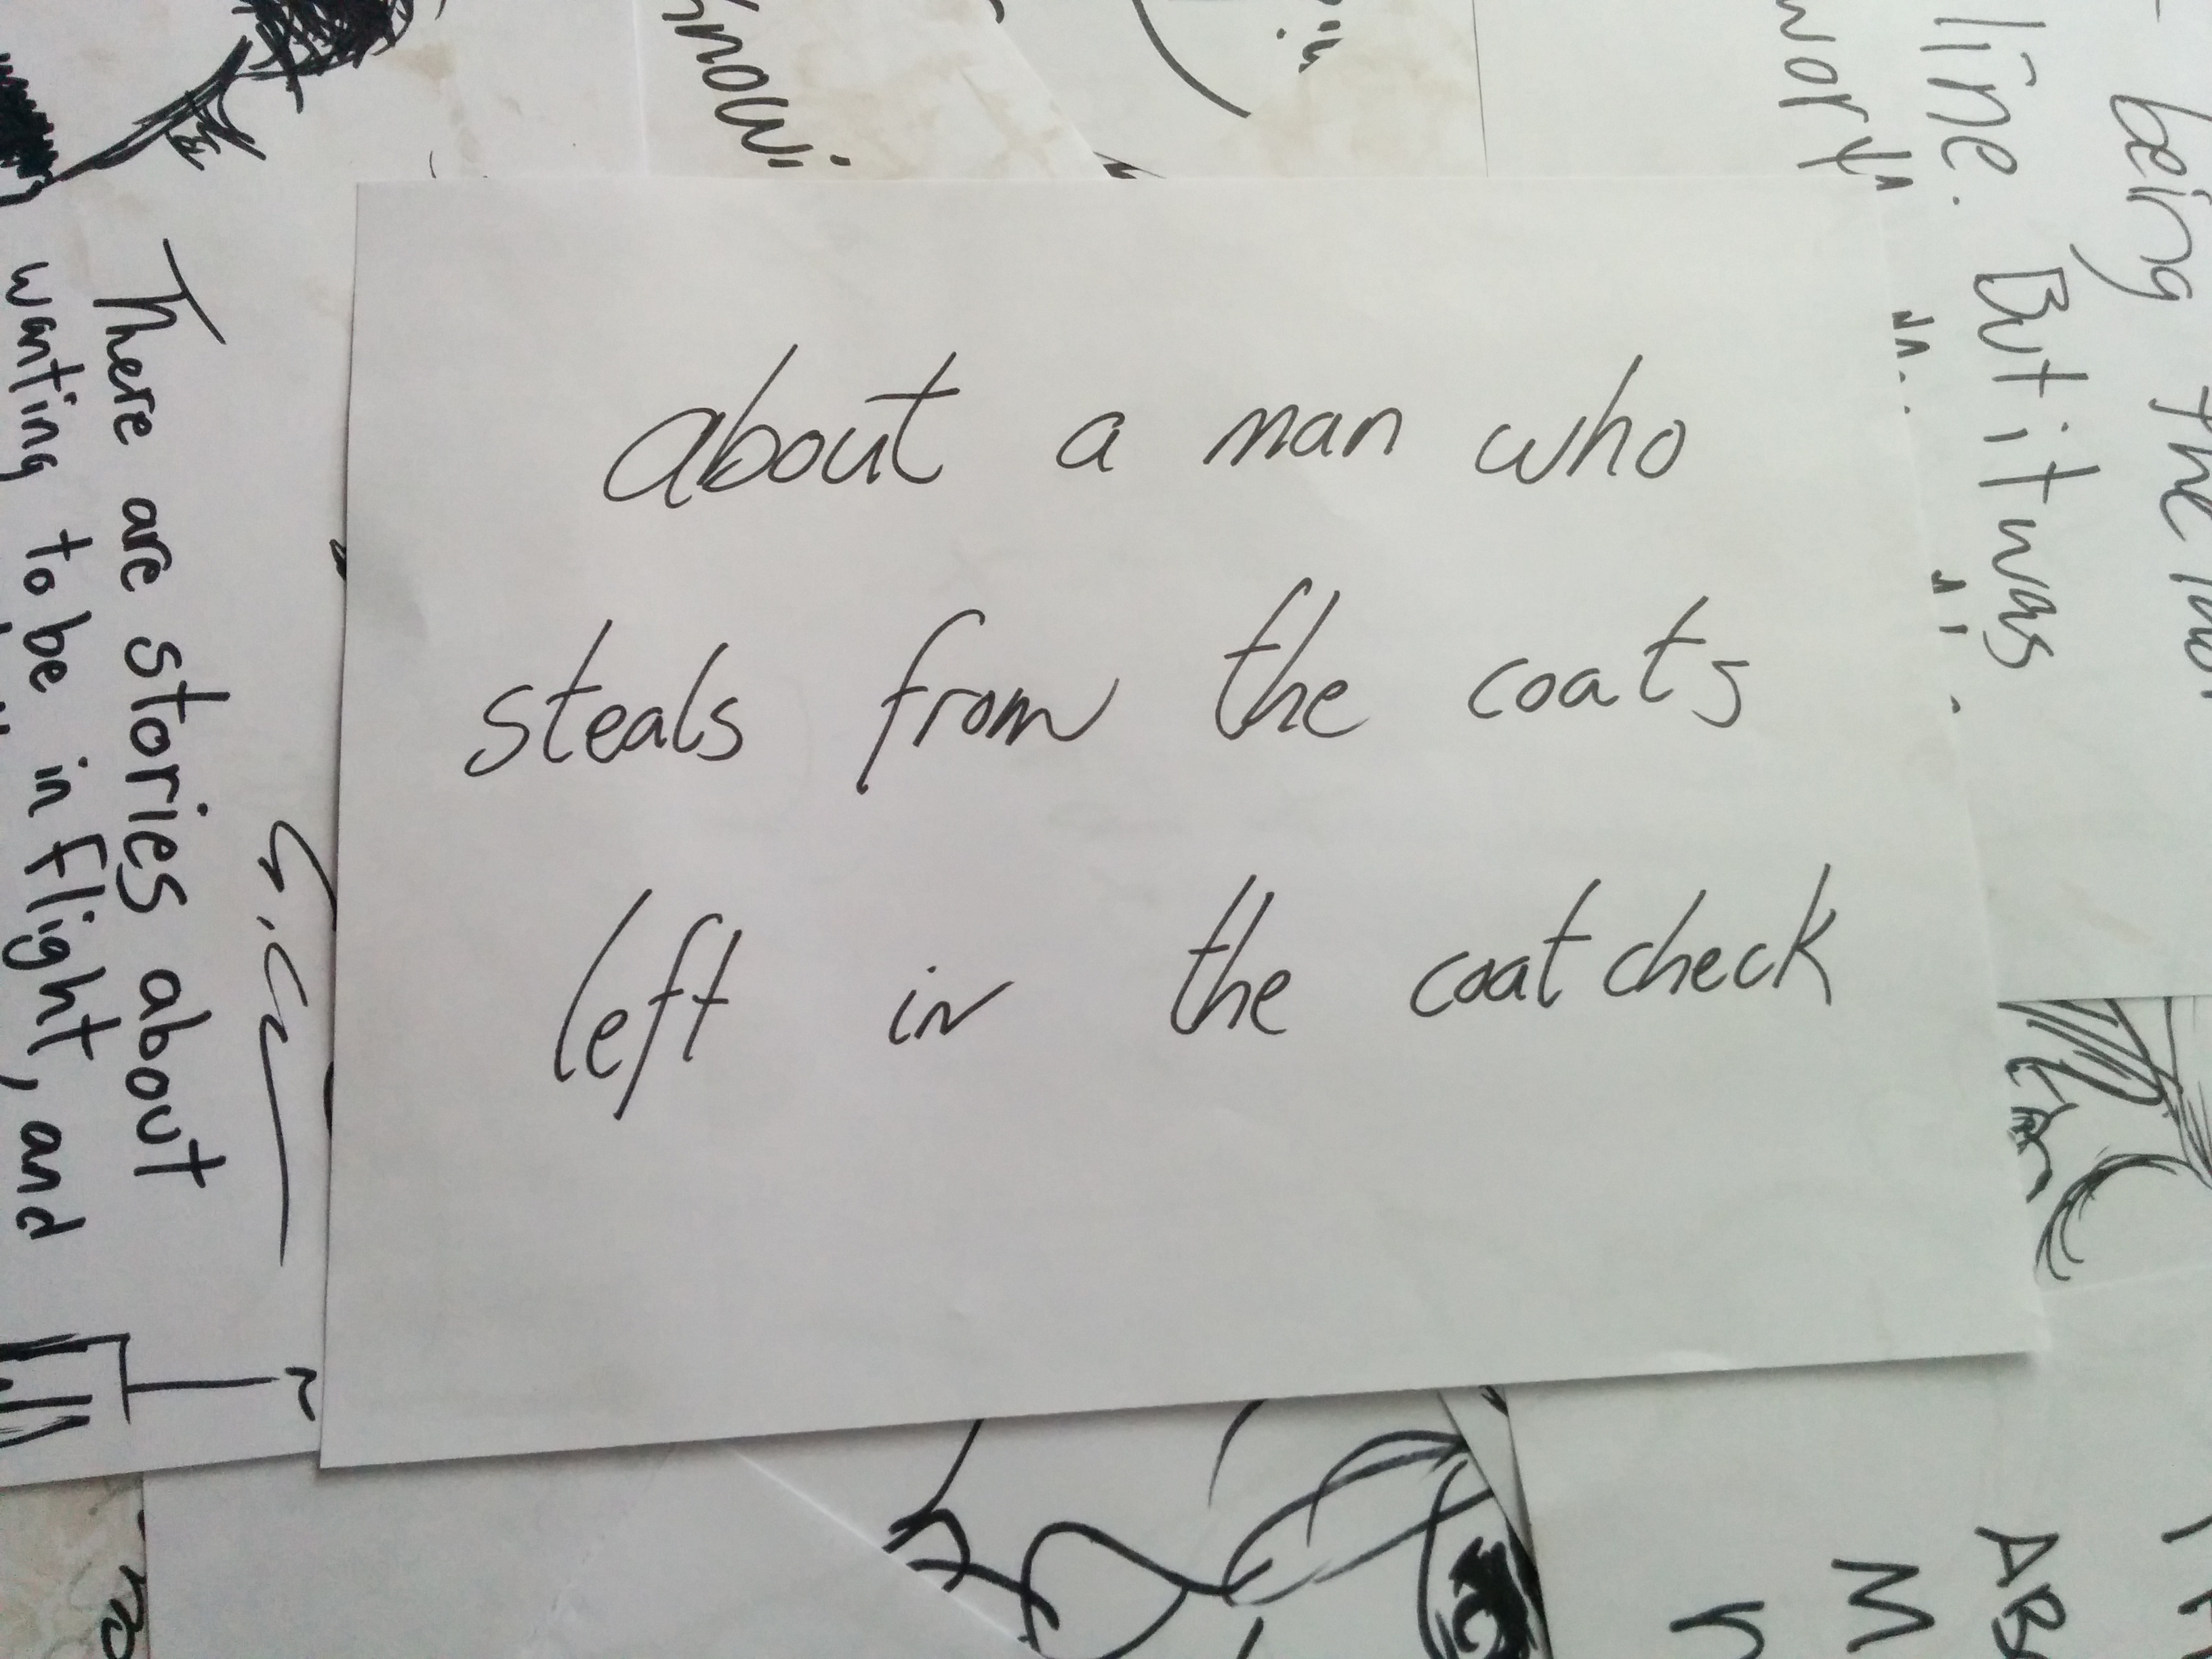 about a man who
steals from the coats
left in the coatcheck
There are stories about
wanting to be in flight, and
being the
line. But it was
work